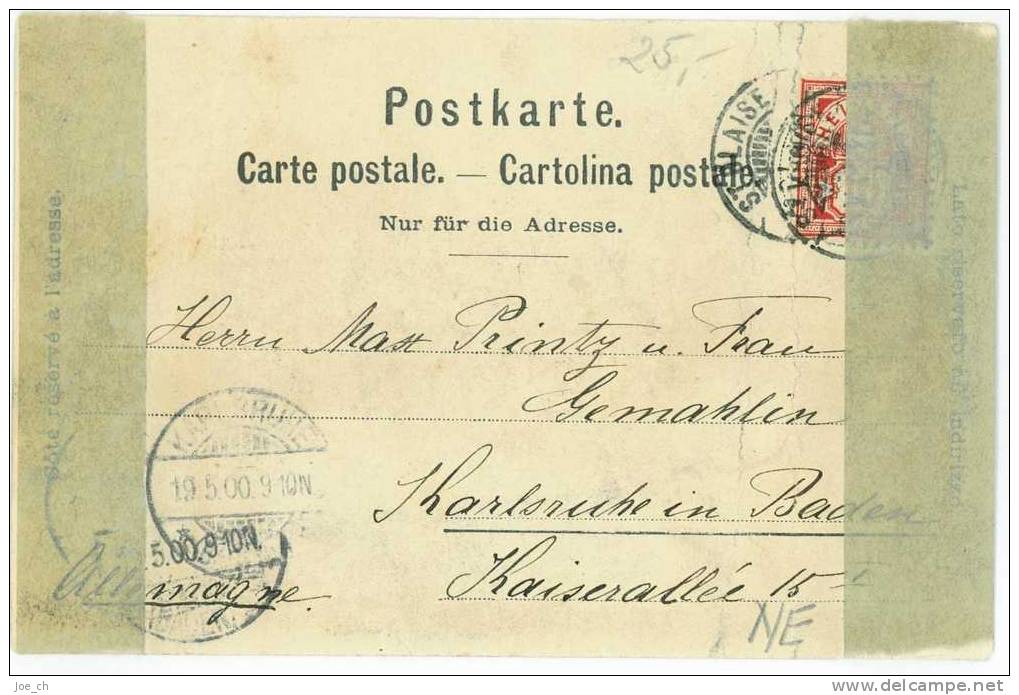 25,-
Postkarte.
Carte postale. — Cartolina postale.
Nur für die Adresse.
Côté réservé à l'adresse.
Lato riservato all'indirizzo.
ST BLAISE
HELVETIA
Herrn Max Printz u. Frau
Gemahlin
Karlsruhe in Baden
Kaiserallée 15
Allemagne.
KARLSRUHE
19.5.00.9-10N.
5.00.9-10N.
NE
joe_ch
delcampe.net